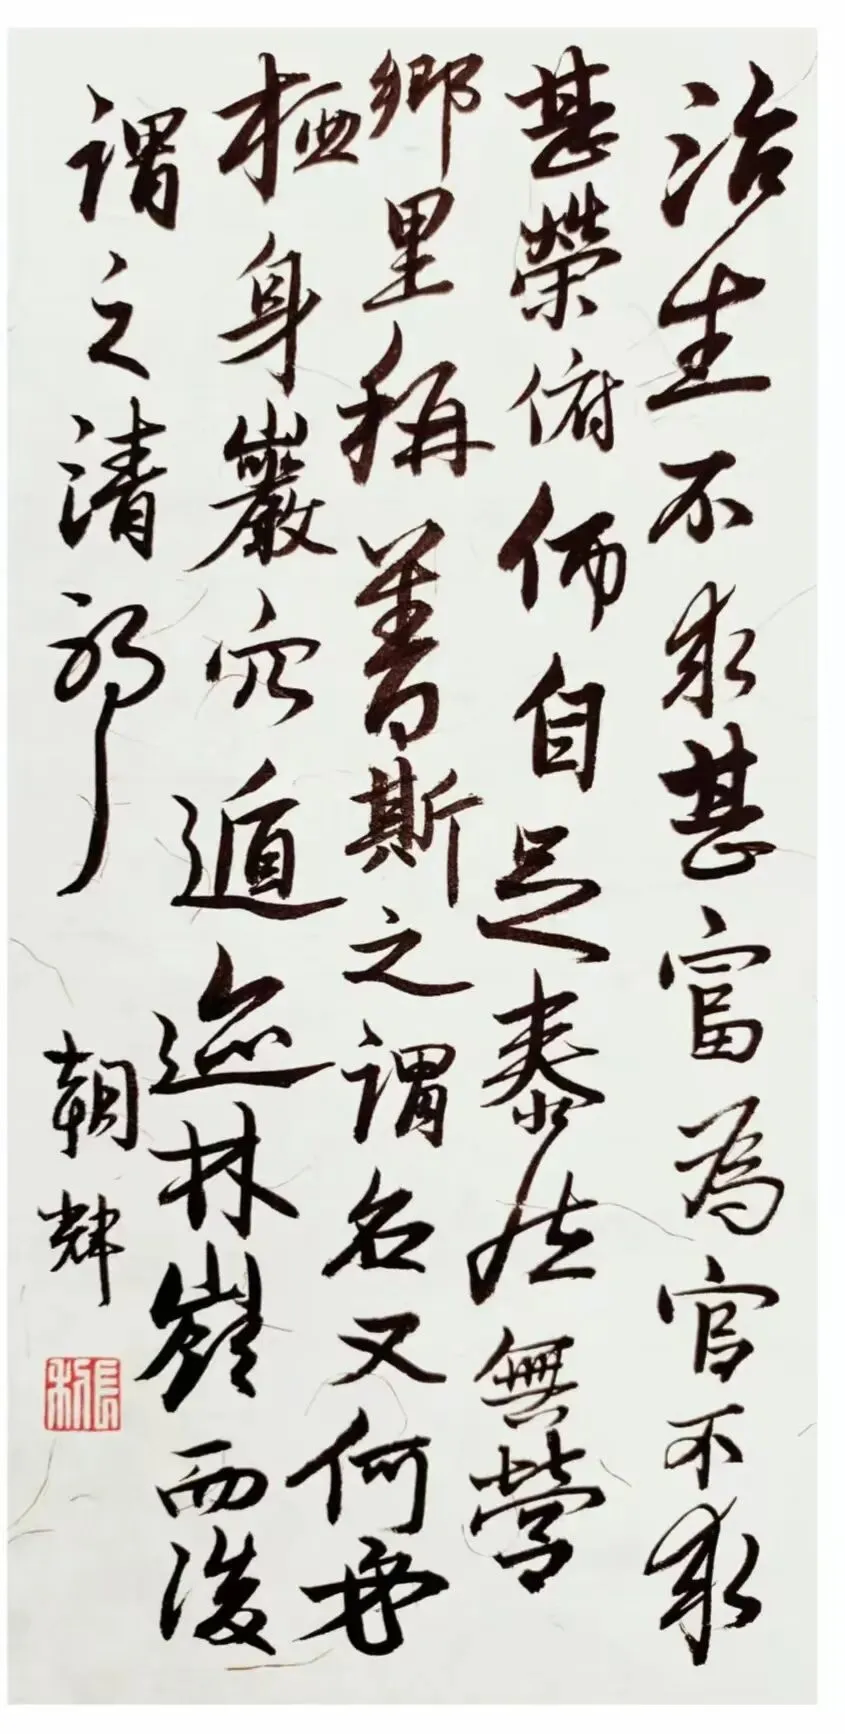 治生不求甚富為官不求
甚榮俯仰自足泰然無營
鄉里稱善斯之謂名又何必
栖身巖穴遁迹林嶺而後
謂之清耶
朝輝